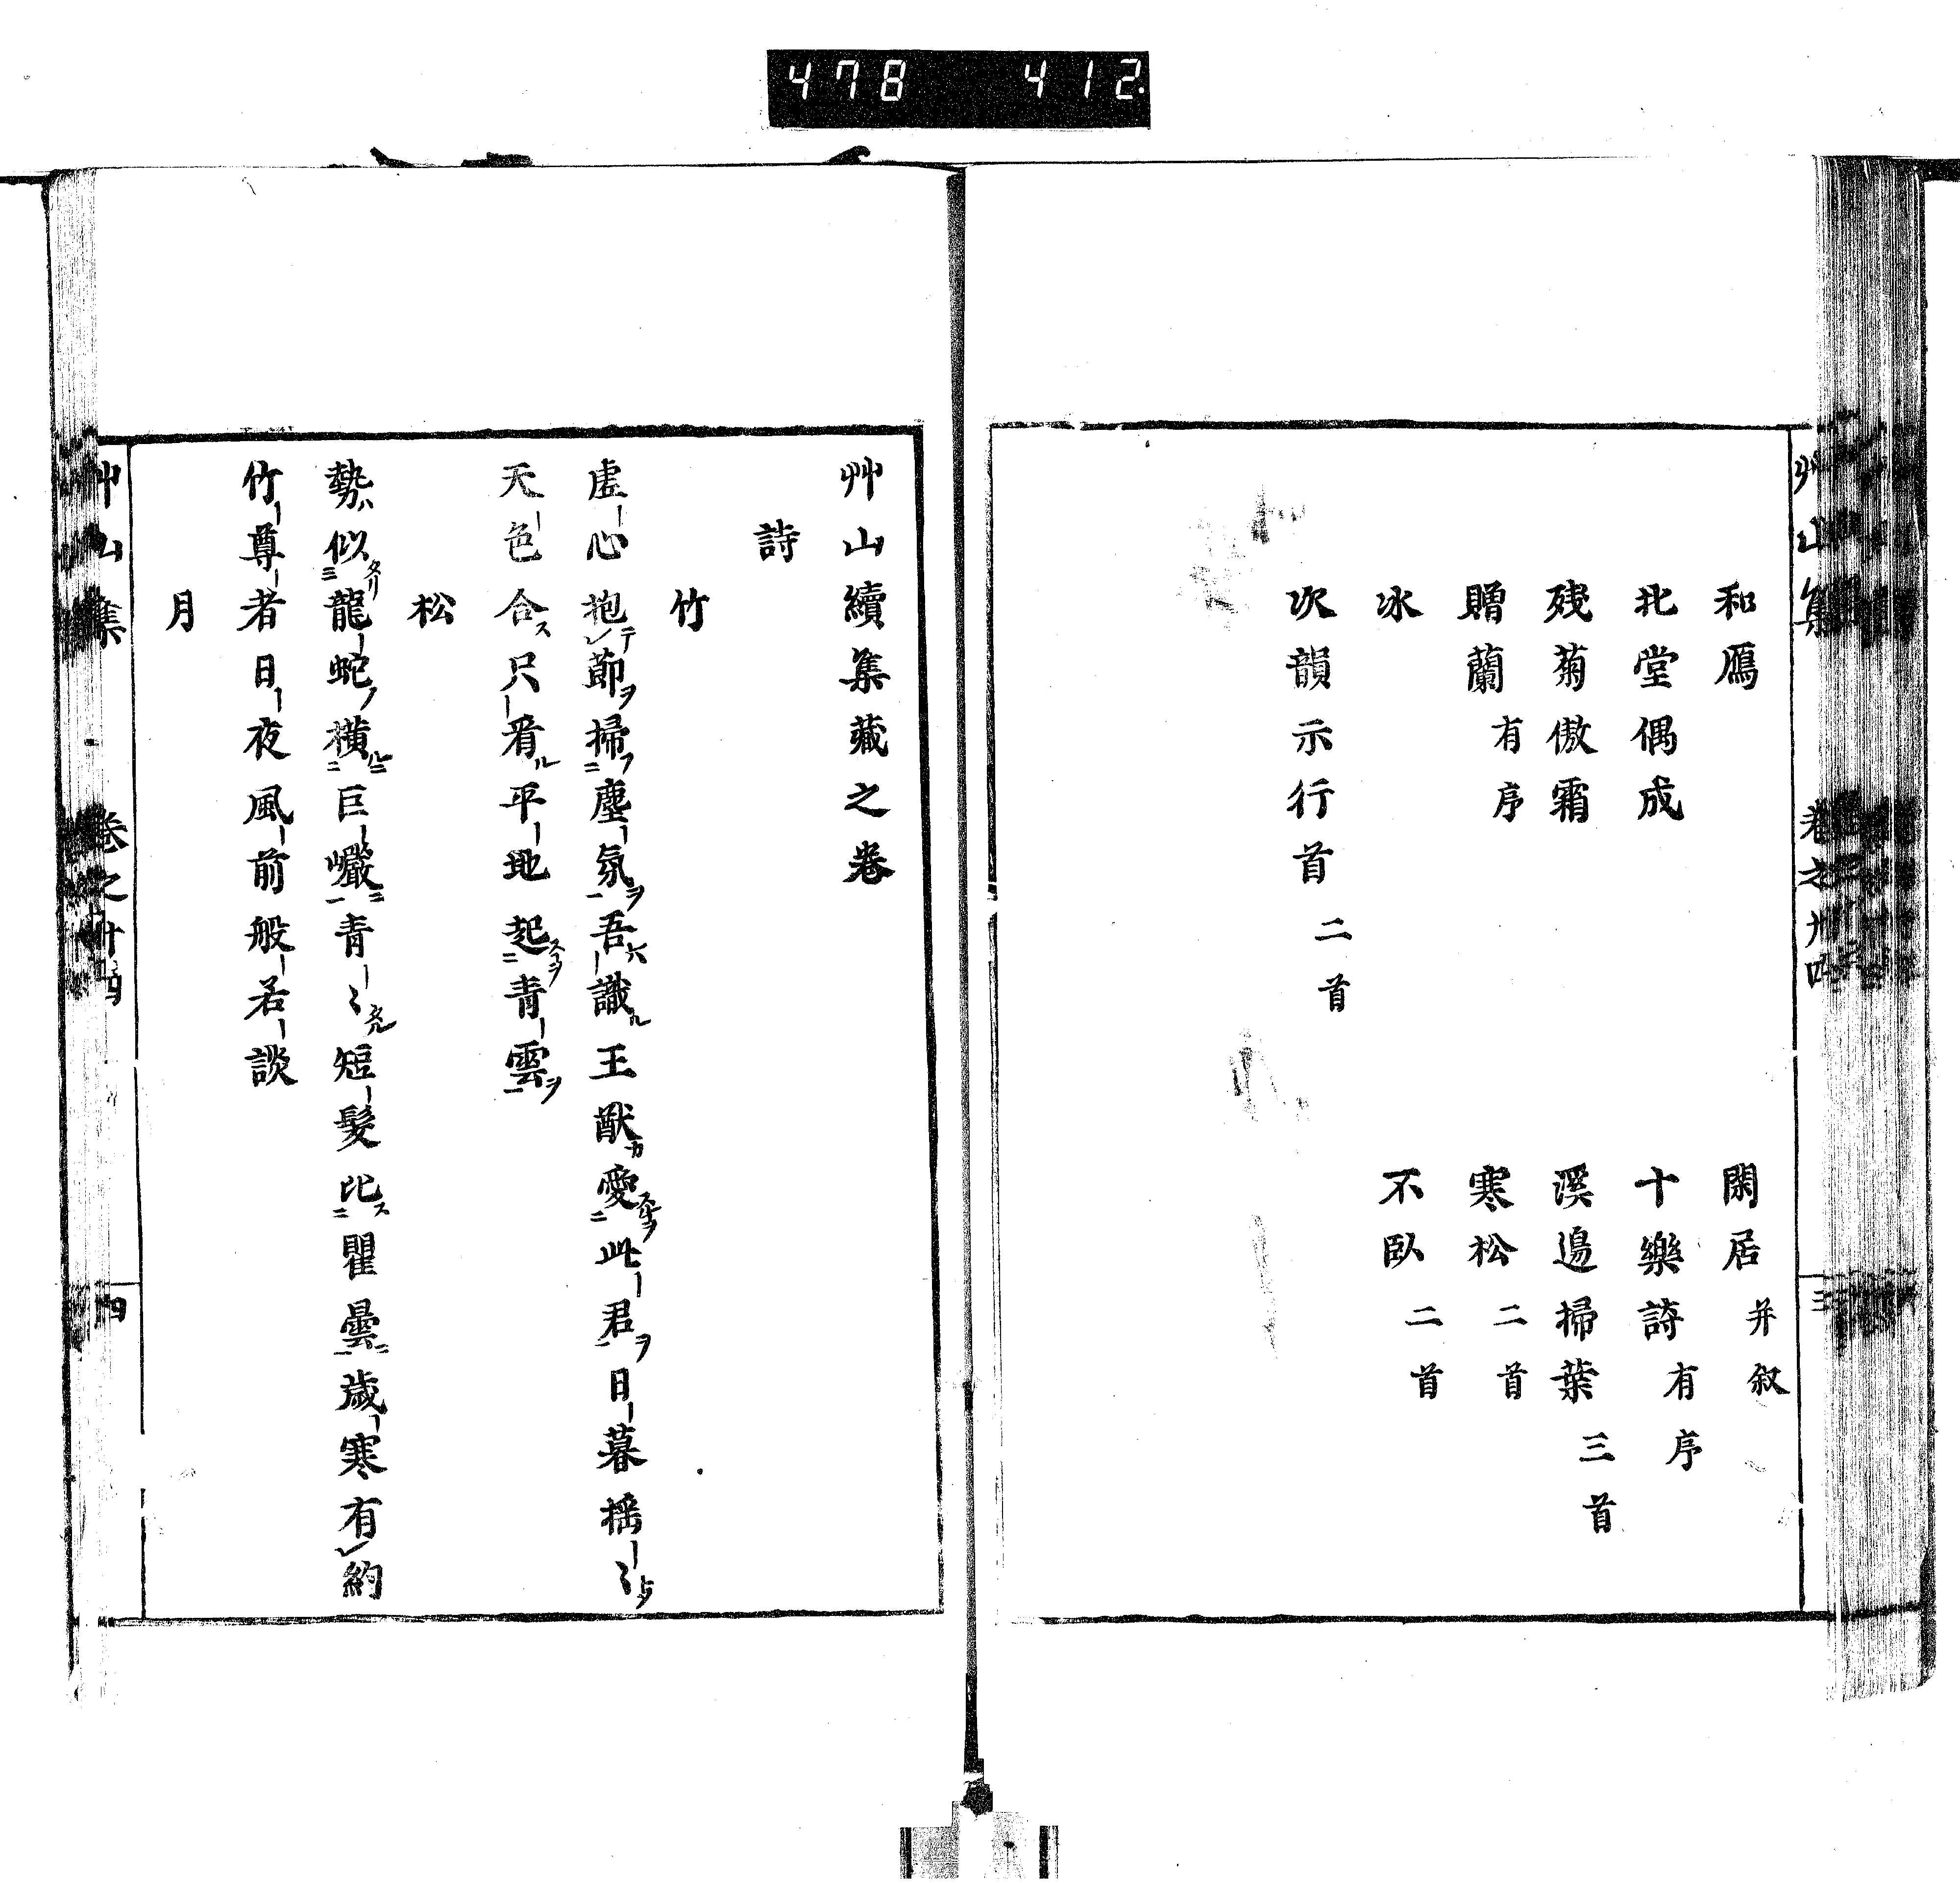 478 412
艸山集 卷之廿四 三
和鴈 閑居 并叙
北堂偶成 十樂詩 有序
殘菊傲霜 溪邊掃葉 三首
贈蘭 有序 寒松 二首
冰 不臥 二首
次韻示行首 二首
艸山續集藏之卷
詩
竹
虛心抱節掃塵氛吾識王猷愛此君日暮搖〻
天色合只看平地起青雲
松
勢似龍蛇橫巨巘青〻短髮比瞿曇歲寒有約
竹尊者日夜風前般若談
月
艸山集 卷之廿四 四